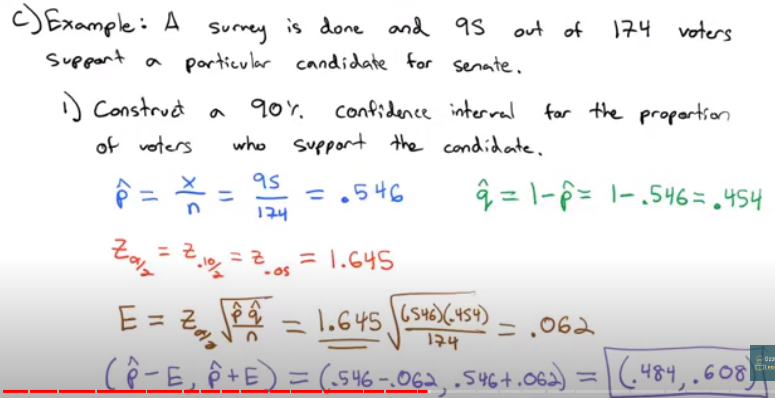 c) Example: A survey is done and 95 out of 174 voters
support a particular candidate for senate.
1) Construct a 90% confidence interval for the proportion
of voters who support the candidate.
p̂ = x/n = 95/174 = .546 q̂ = 1-p̂ = 1-.546 = .454
Z_α/2 = Z_.10/2 = Z_.05 = 1.645
E = Z_α/2 √(p̂ q̂/n) = 1.645 √((.546)(.454)/174) = .062
(p̂-E, p̂+E) = (.546-.062, .546+.062) = (.484, .608)